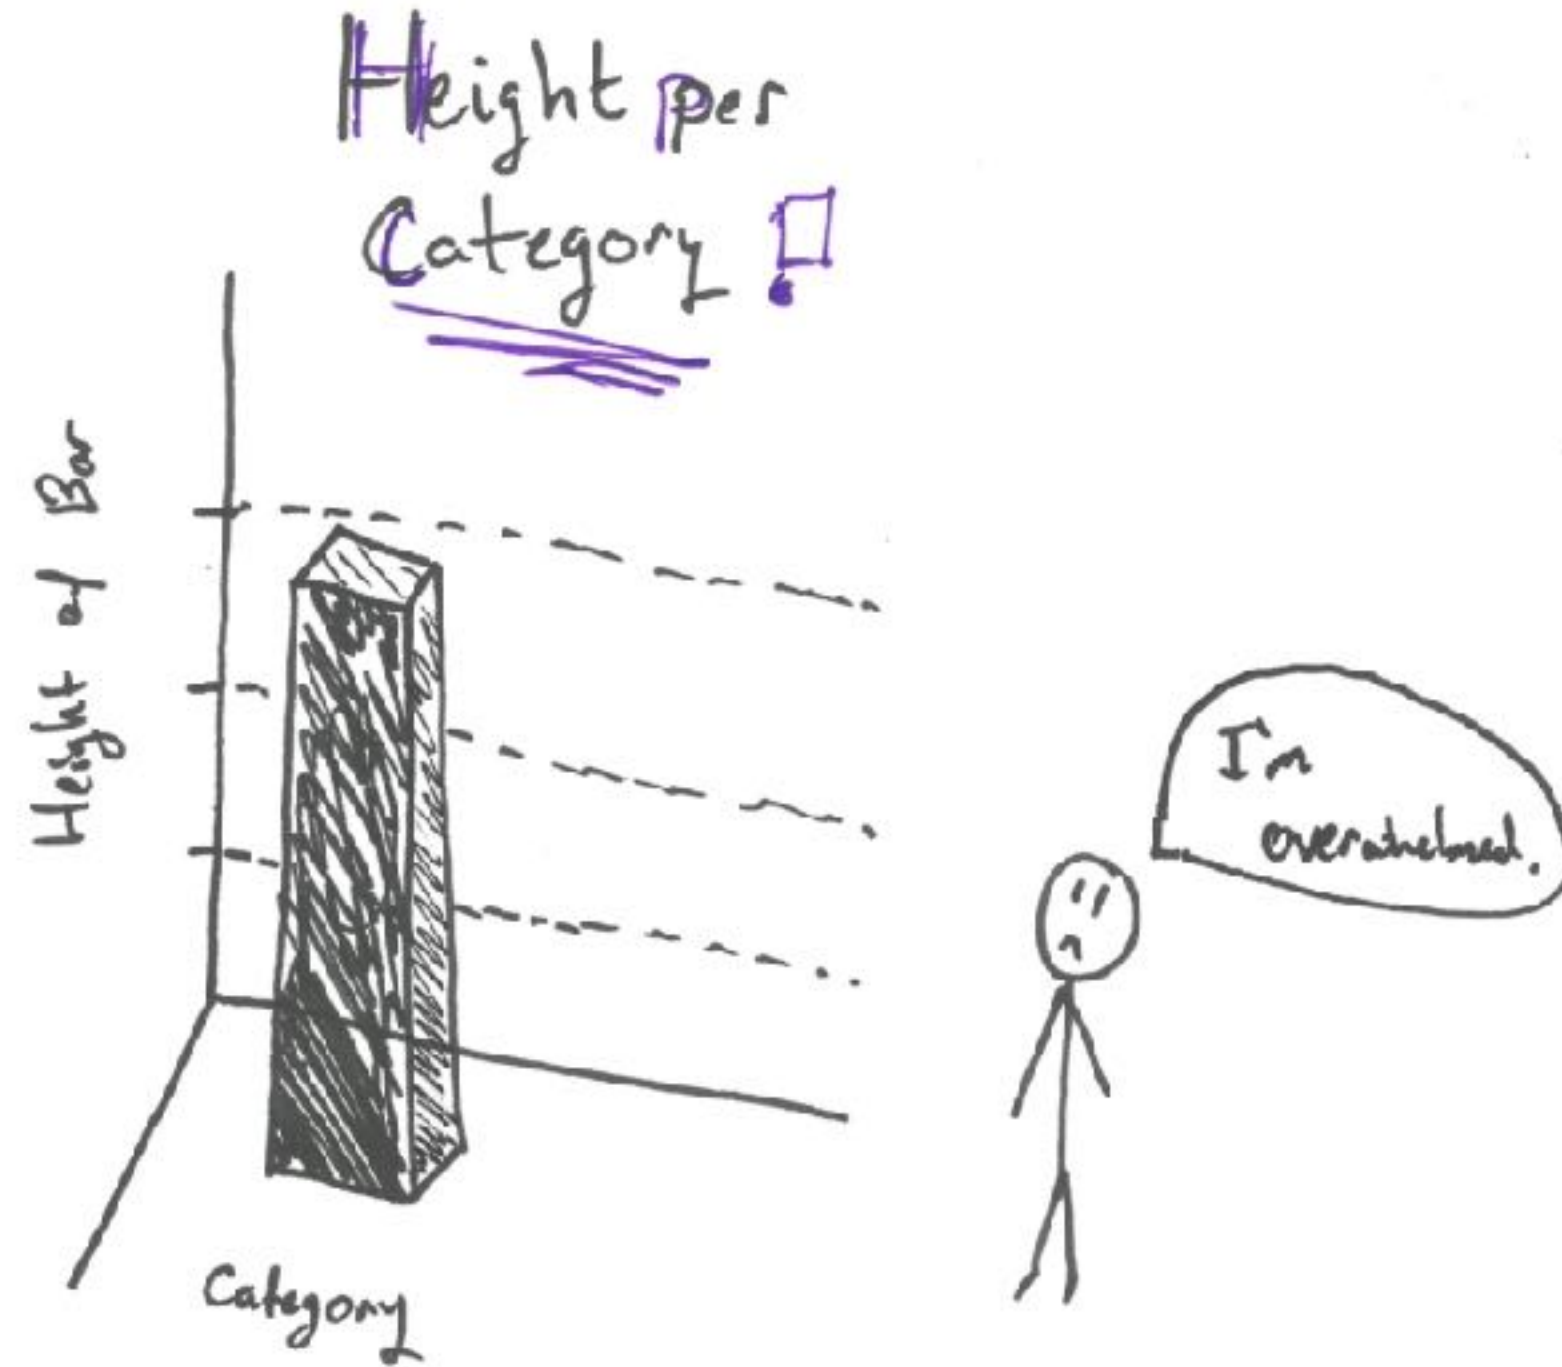 Height per
Category !
Height of Bar
Category
I'm
overwhelmed.